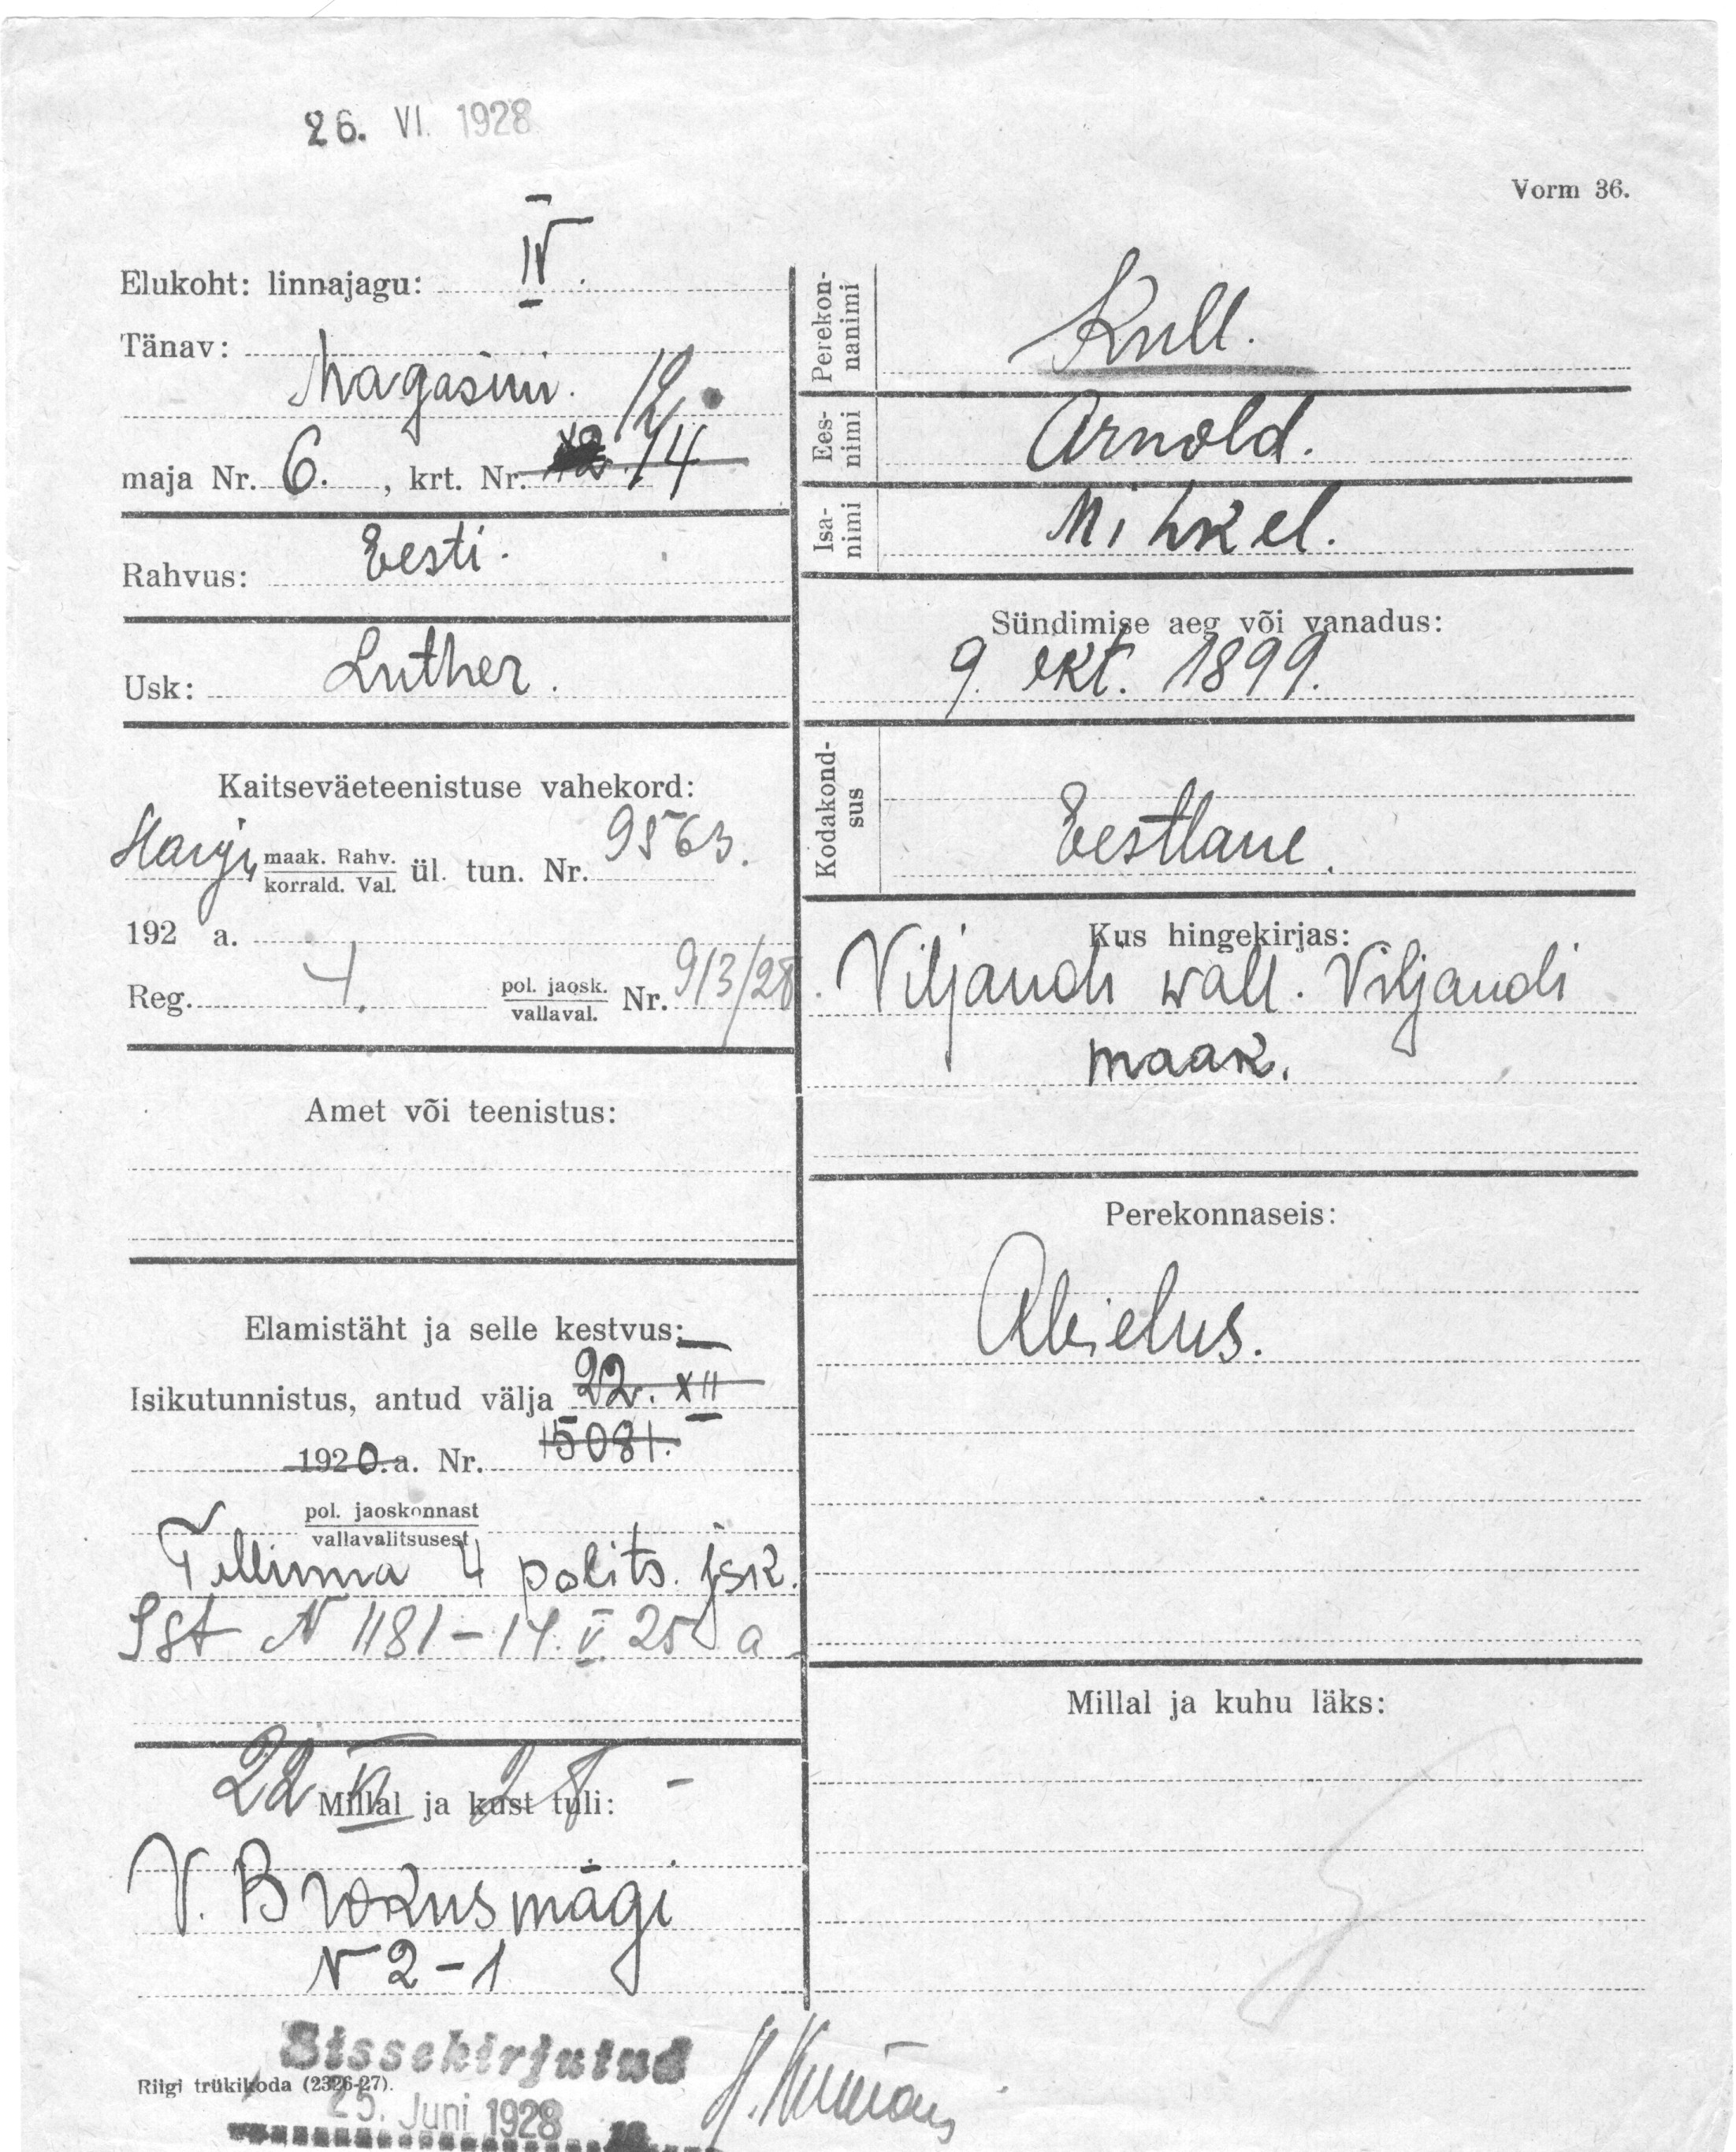 26. VI. 1928
Vorm 36.
Elukoht: linnajagu: IV.
Tänav:
Magasini. 12
maja Nr. 6. , krt. Nr. 14
Rahvus: Eesti.
Usk: Luther.
Kaitseväeteenistuse vahekord:
Harju maak. Rahv. korrald. Val. ül. tun. Nr. 9563.
192 a.
Reg. 4. pol. jaosk. vallaval. Nr. 913/28.
Amet või teenistus:
Elamistäht ja selle kestvus:
Isikutunnistus, antud välja 22. XII
1920.a. Nr. 15081.
pol. jaoskonnast
vallavalitsusest
Tallinna 4 polits. jsk.
Ist N 1181 - 14. V 25 a
Millal ja kust tuli:
22 VI 28 -
V. Brokusmägi
N 2-1
Sissekirjutud
Riigi trükikoda (2326-27).
25. Juni 1928
Perekonnanimi
Kull.
Eesnimi
Arnold.
Isanimi
Mihkel.
Sündimise aeg või vanadus:
9. okt. 1899.
Kodakondsus
Eestlane.
Kus hingekirjas:
Viljandi wall. Viljandi
maak.
Perekonnaseis:
Abielus.
Millal ja kuhu läks: